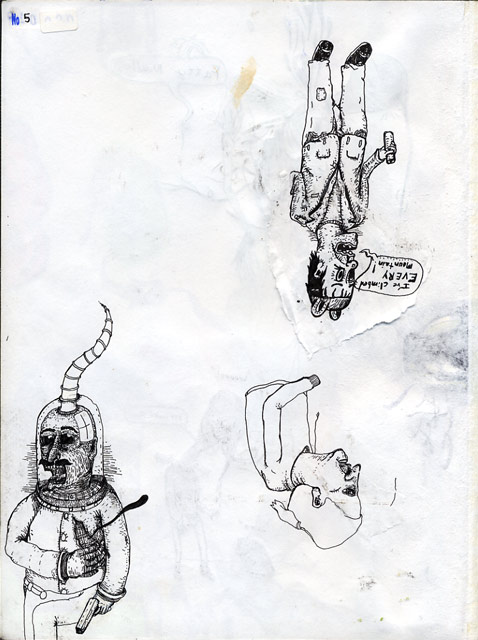 No 5
I've climbed
EVERY
Mountain!